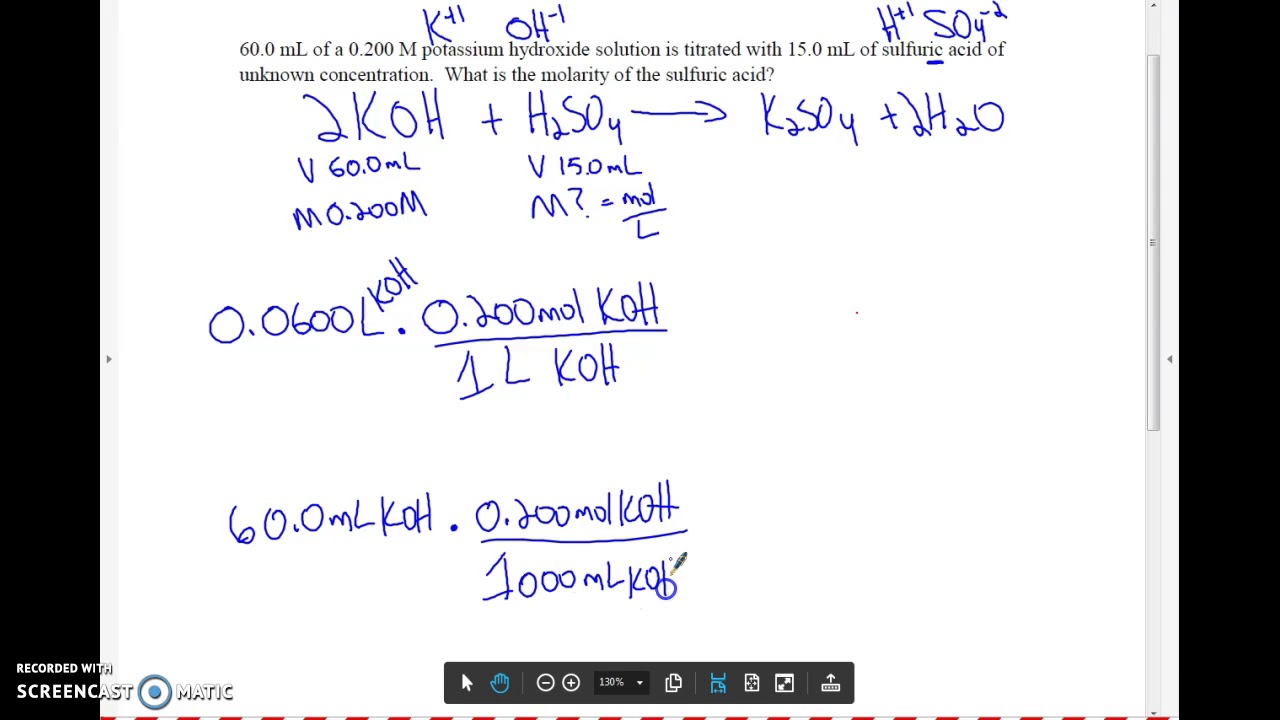 K+1 OH-1 H+1 SO4-2
60.0 mL of a 0.200 M potassium hydroxide solution is titrated with 15.0 mL of sulfuric acid of
unknown concentration. What is the molarity of the sulfuric acid?
2KOH + H2SO4 → K2SO4 + 2H2O
V 60.0mL V 15.0mL
M 0.200M M? = mol
L
KOH
0.0600L · 0.200mol KOH
1 L KOH
60.0mL KOH · 0.200mol KOH
1000mL KOH
RECORDED WITH
SCREENCAST MATIC
130%